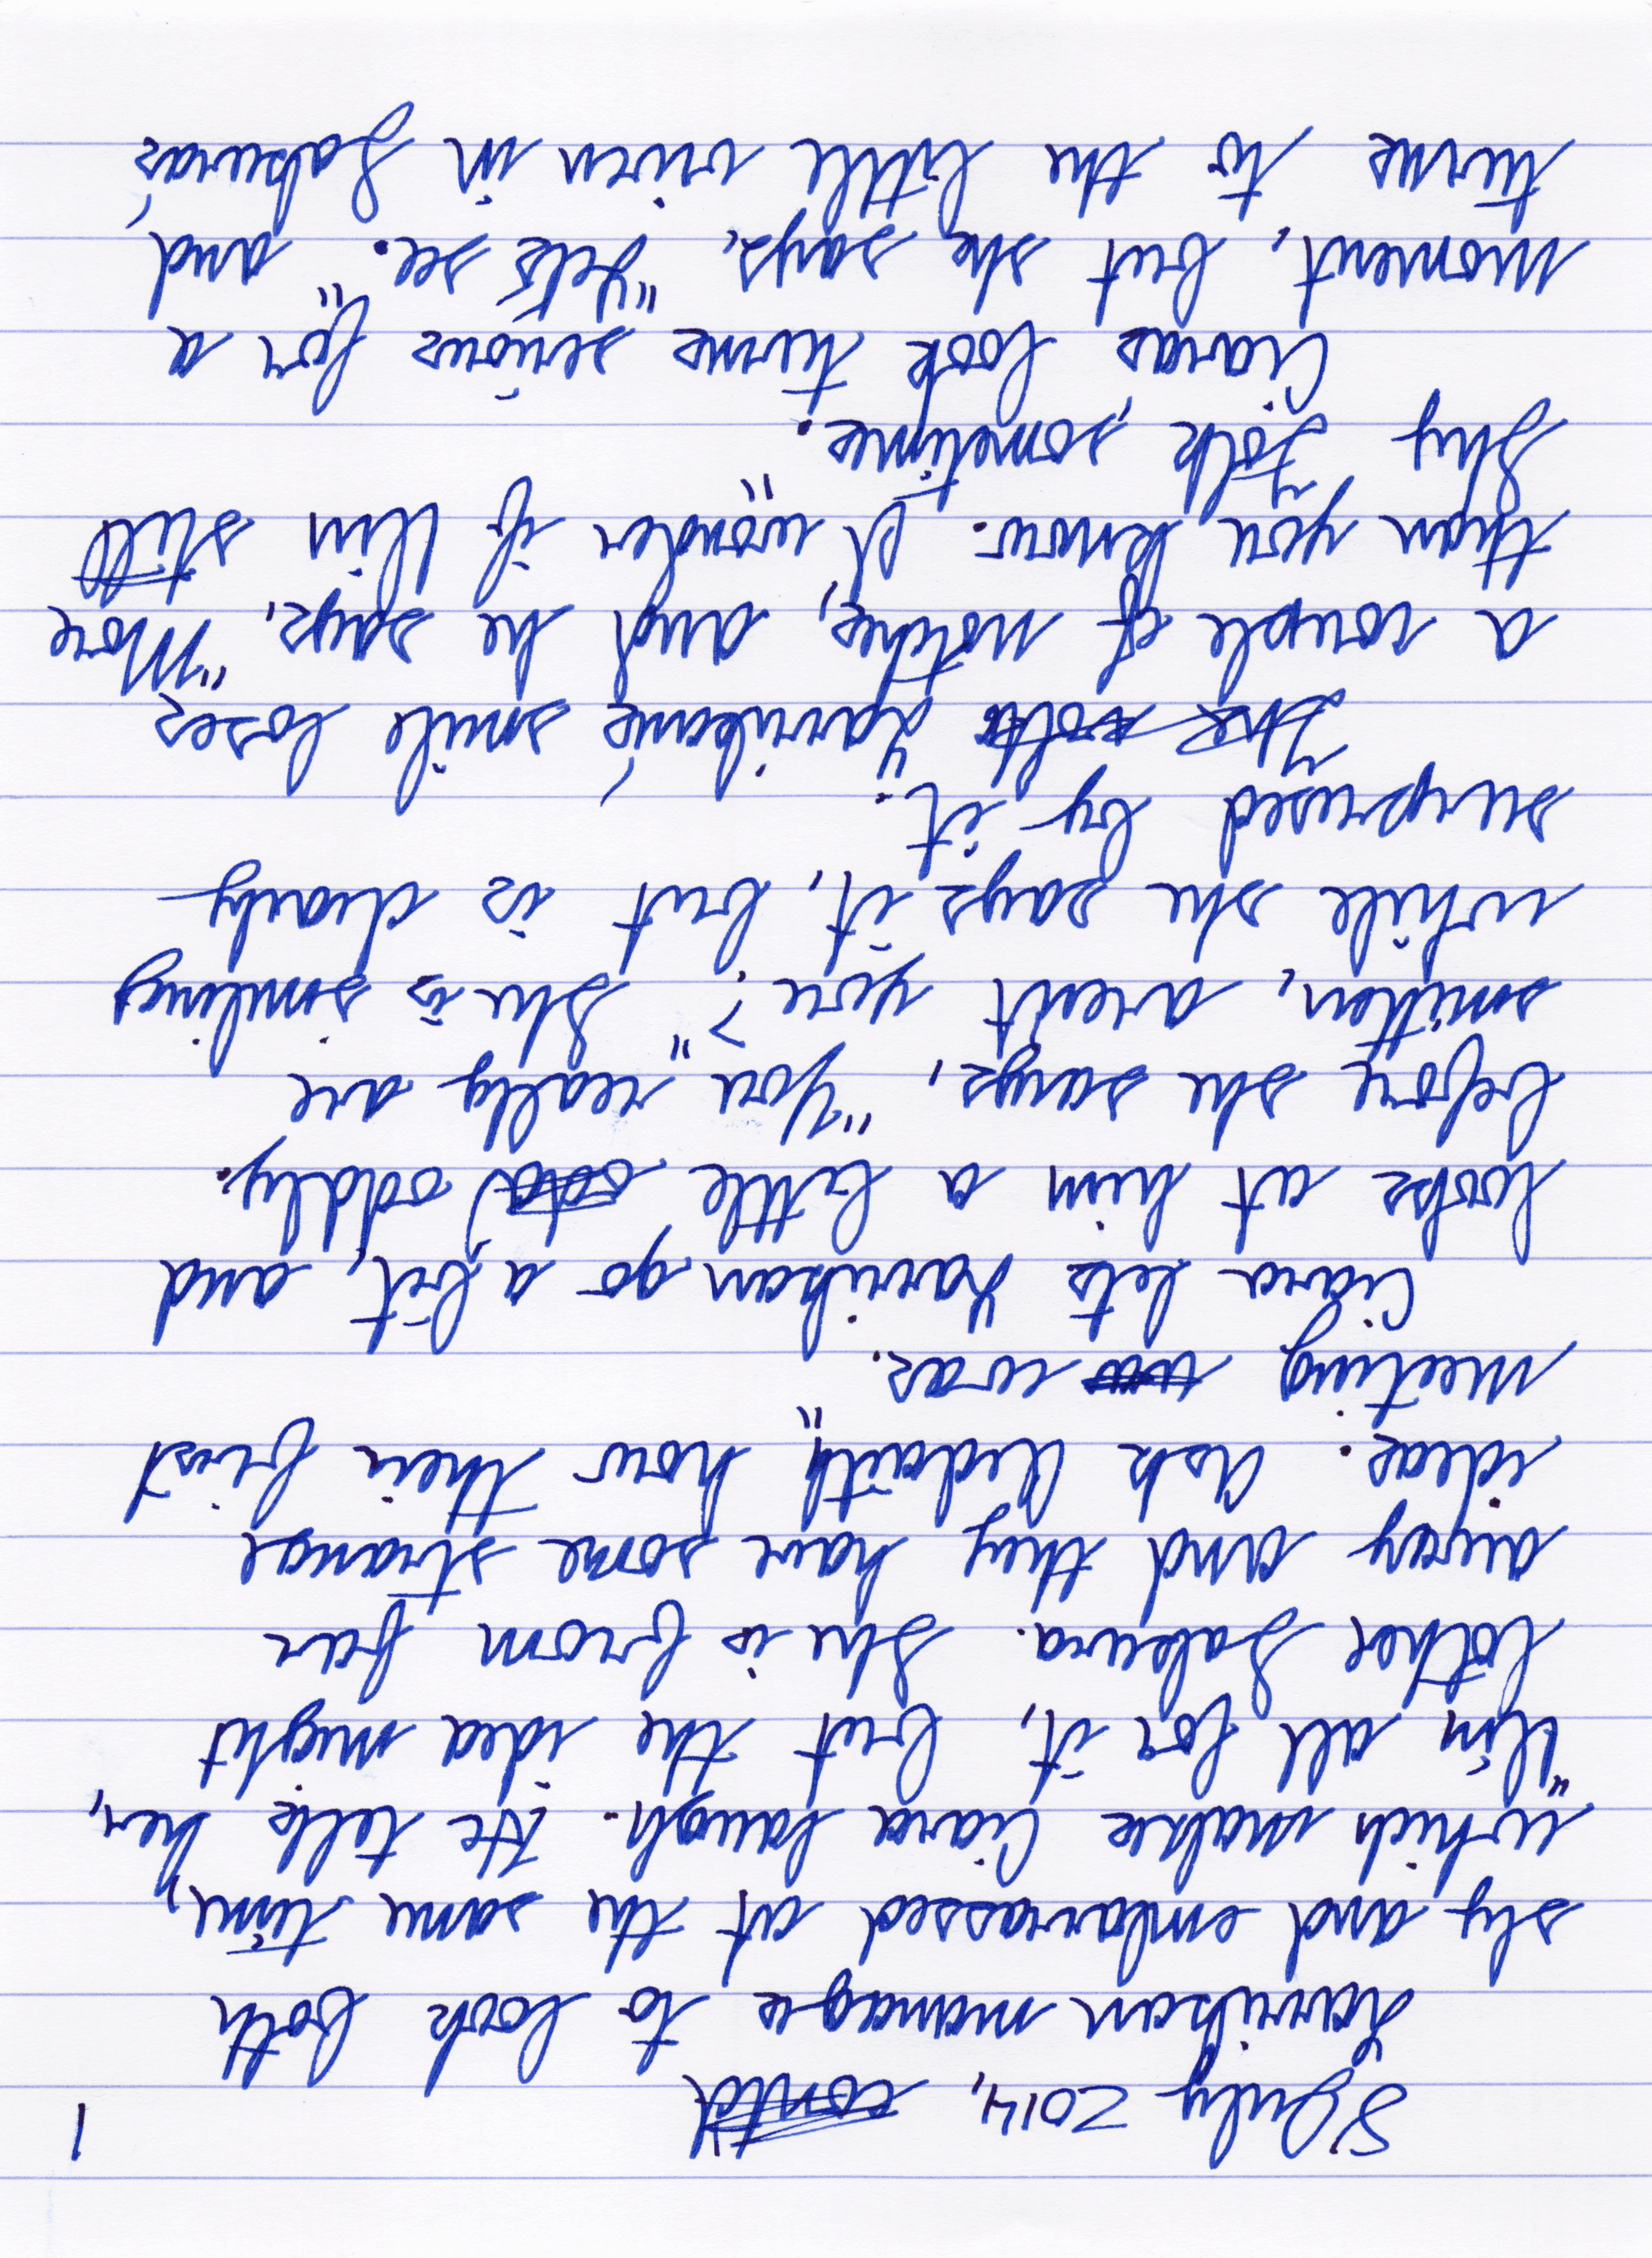 8 July 2014, contd 1
Harrihan manages to look both
sly and embarrassed at the same time,
which makes Ciara laugh. He tells her,
"I'm all for it, but the idea might
bother Sakura. She is from far
away and they have some strange
ideas. Ask Aidaith how their first
meeting was."
Ciara lets Harrihan go a bit, and
looks at him a little oddly.
before she says, "You really are
smitten, aren't you?" She is smiling
while she says it, but is clearly
surprised by it.
Harrihans' smile loses
a couple of notches, and he says, "More
than you know. I wonder if I'm still
Shy Folk, sometimes."
Ciaras look turns serious for a
moment, but she says, "Let's see." and
turns to the little vixen in Sakuras'